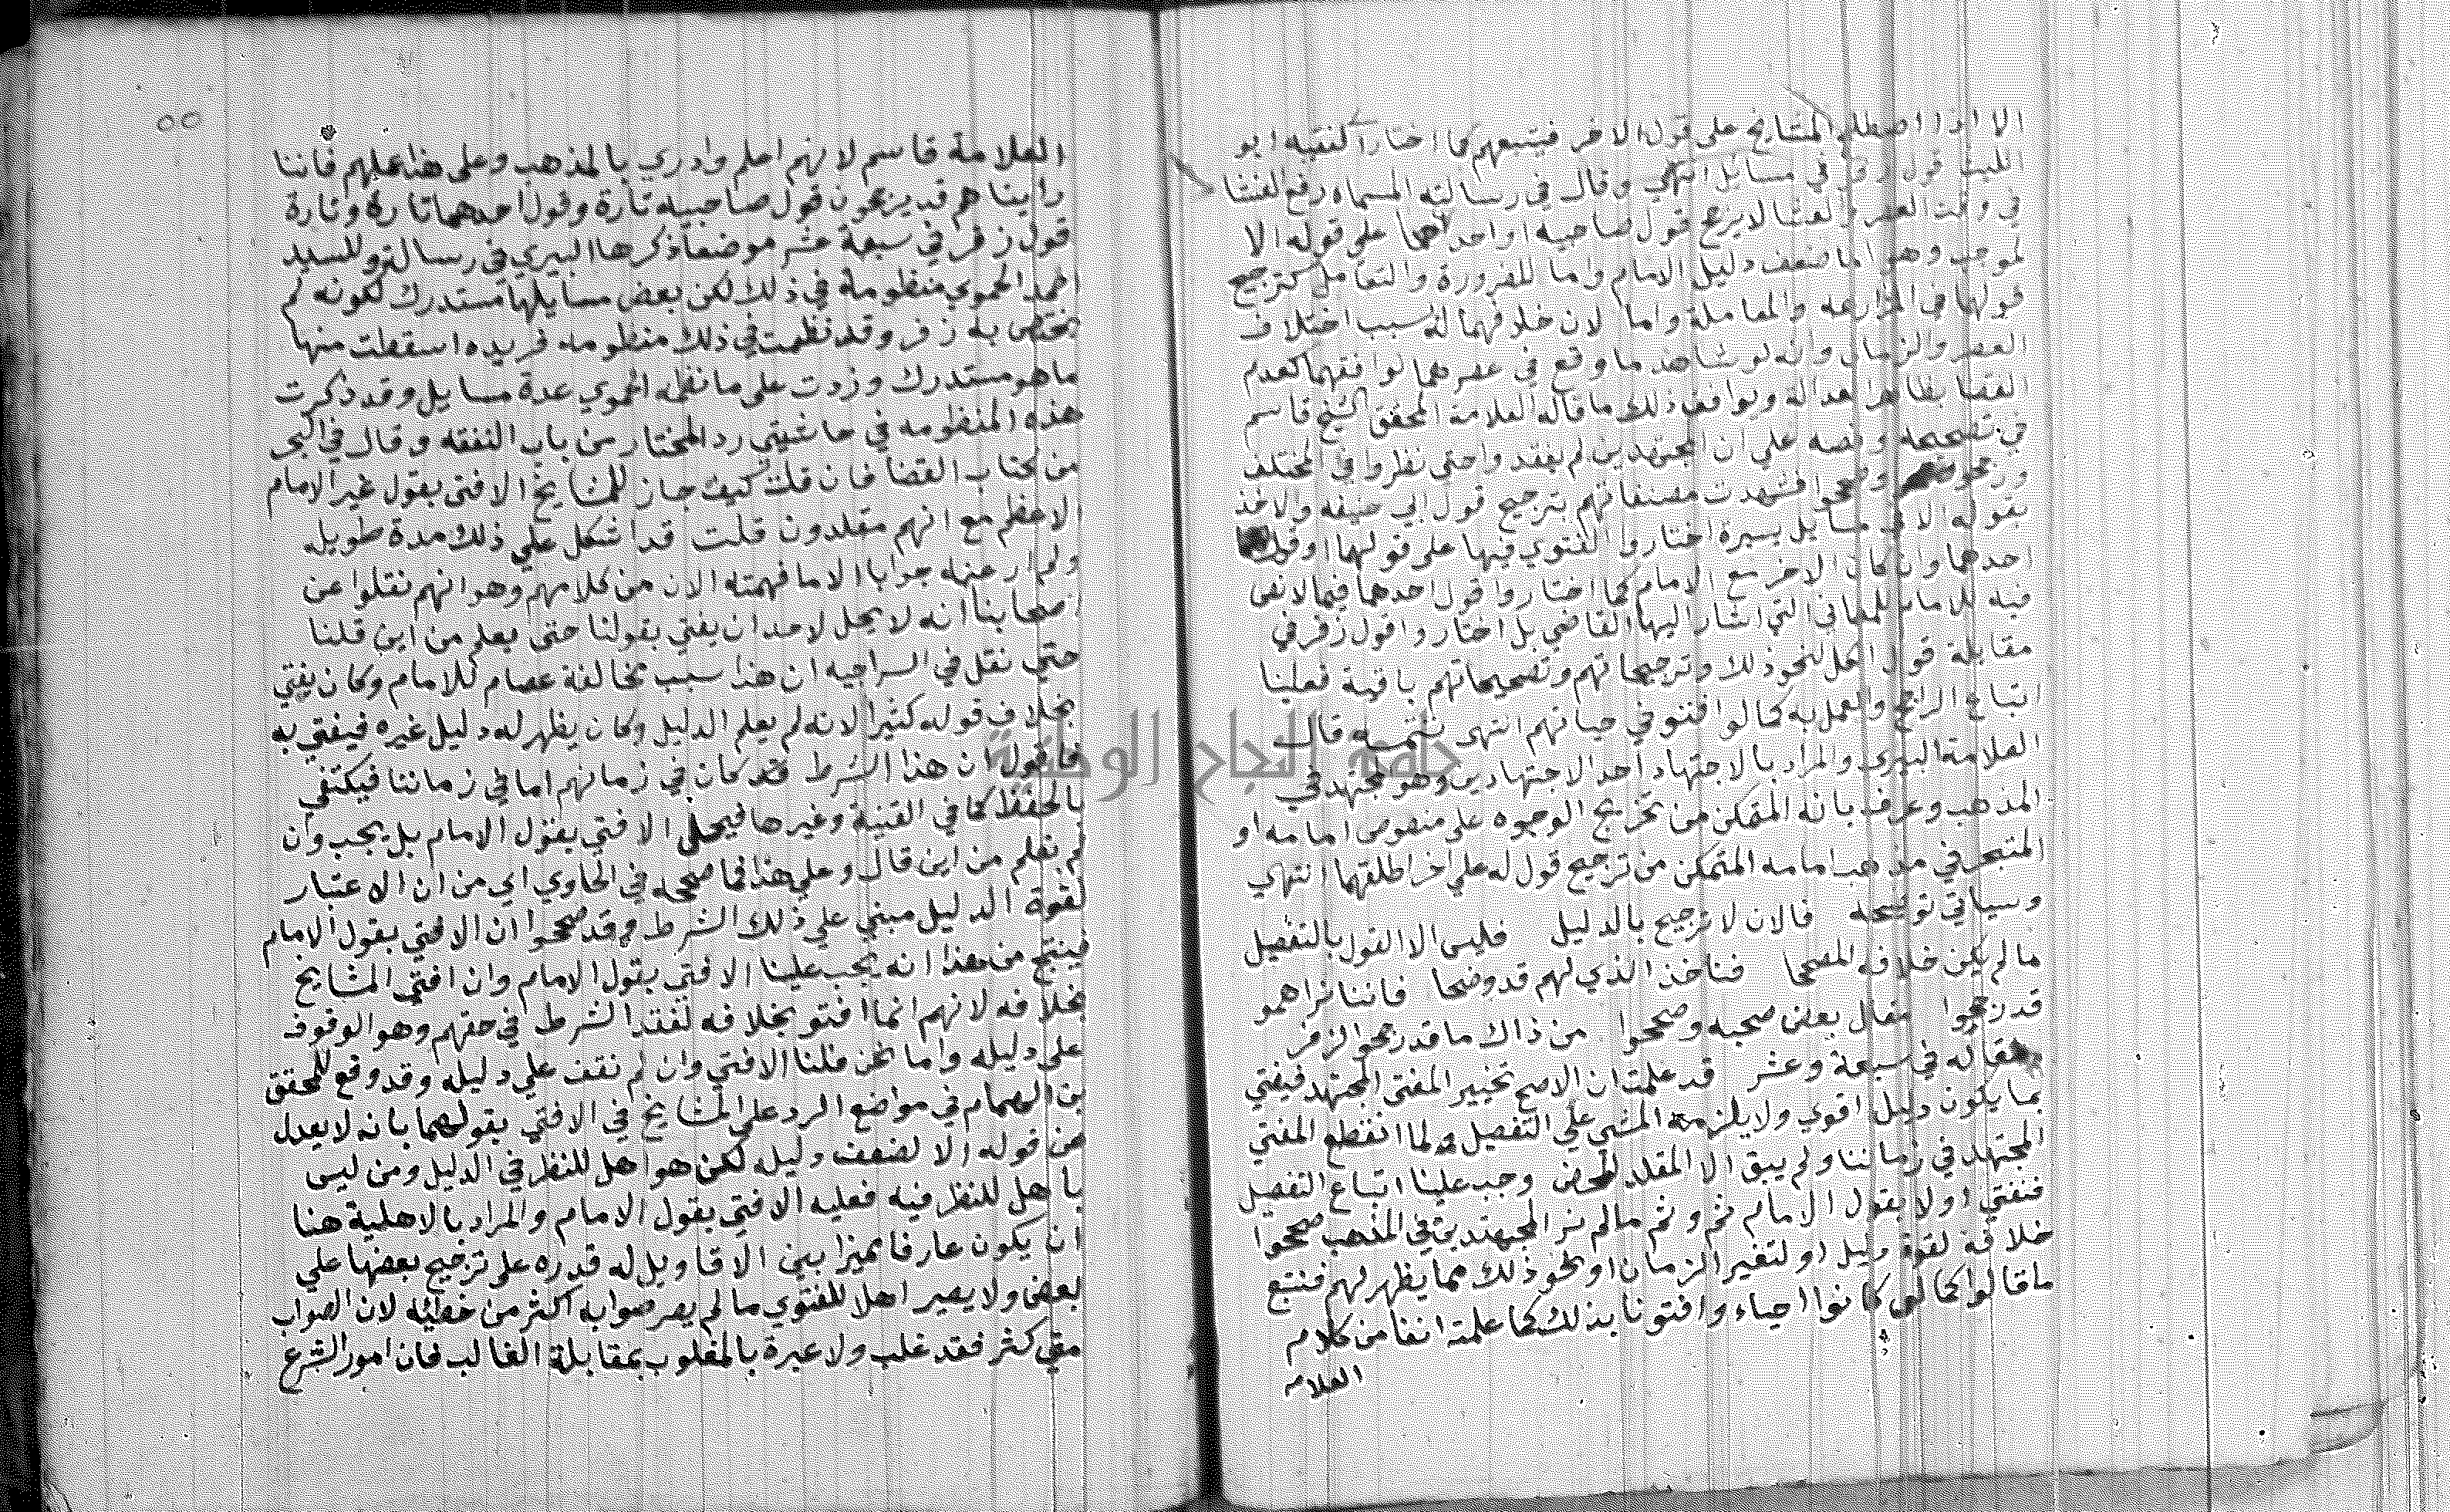 الا اذا اصطلح المشايخ على قول الاخر فيتبعهم كما اختار الفقيه ابو
الليث قول زفر في مسايل انتهى وقال في رسالته المسماه رفع الغشا
في وقت العصر والعشا لا يرجح قول صاحبيه او احدهما على قوله الا
لموجب وهو اما ضعف دليل الامام واما للضرورة والتعامل كترجيح
قولهما في المزارعه والمعاملة واما لان خلافهما له بسبب اختلاف
العصر والزمان وانه لو شاهد ما وقع في عصرهما لوافقهما كعدم
القضا بظاهر العدالة ويوافق ذلك ما قاله العلامة المحقق الشيخ قاسم
في تصحيحه ونصه علي ان المجتهدين لم يفقدوا حتى نظروا في المختلف
ورجحوا وصححوا فشهدت مصنفاتهم بترجيح قول ابي حنيفه والاخذ
بقوله الا في مسايل يسيرة اختاروا الفتوي فيها على قولهما او قول
احدهما وان كان الاخر مع الامام كما اختاروا قول احدهما فيما لا نص
فيه للامام للمعاني التي اشار اليها القاضي بل اختاروا قول زفر في
مقابلة قول الكل لنحو ذلك وترجيحاتهم وتصحيحاتهم باقية فعلينا
اتباع الراجح والعمل به كما لو افتو في حياتهم انتهى تتمه قال
العلامة البيرى والمراد بالاجتهاد احد الاجتهادين وهو مجتهد في
المذهب وعرف بانه المتمكن من تخريج الوجوه على منصوص امامه او
المتبحر في مذهب امامه المتمكن من ترجيح قول له علي اخر اطلقهما انتهي
وسياتي توضيحه فالان لا ترجيح بالدليل فليس الا القول بالتفصيل
ما لم يكن خلافه المصححا فناخذ الذي لهم قد وضحا فاننا نراهمو
قد رجحوا مقال بعض صحبه وصححوا من ذاك ما قد رجحوا لزفر
مقاله في سبعة وعشر قد علمت ان الاصح تخيير المفتى المجتهد فيفتي
بما يكون دليل اقوي ولا يلزمه المشي علي التفصيل ولما انقطع المفتي
المجتهد في زماننا ولم يبق الا المقلد المحض وجب علينا اتباع التفصيل
فنفتي اولا بقول الامام ثم وثم ما لم نر المجتهدين في المذهب صححوا
خلافه لقوة دليل او لتغير الزمان او نحو ذلك مما يظهر لهم فنتبع
ما قالوا كما لو كانوا احياء وافتونا بذلك كما علمته انفا من كلام
العلامه
٥٥
العلامة قاسم لانهم اعلم وادري بالمذهب وعلى هذا عملهم فاننا
راينا هم قد يرجحون قول صاحبيه تارة وقول احدهما تارة وتارة
قول زفر في سبعة عشر موضعا ذكرها البيري في رسالة وللسيد
احمد الحموي منظومة في ذلك لكن بعض مسايلها مستدرك لكونه لم
يختص به زفر وقد نظمت في ذلك منظومه فريده اسقطت منها
ما هو مستدرك وزدت على ما نظمه الحموي عدة مسايل وقد ذكرت
هذه المنظومه في حاشيتي رد المختار من باب النفقه وقال في البحر
من كتاب القضا فان قلت كيف جاز للمشايخ الافتي بقول غير الامام
الاعظم مع انهم مقلدون قلت قد اشكل علي ذلك مدة طويله
ولم ار عنه جوابا الا ما فهمته الان من كلامهم وهو انهم نقلوا عن
اصحابنا انه لا يحل لاحد ان يفتي بقولنا حتى يعلم من اين قلنا
حتي نقل في السراجيه ان هذا سبب مخالفة عصام للامام وكان يفتي
بخلاف قوله كثيرا لانه لم يعلم الدليل وكان يظهر له دليل غيره فيفتي به
فاقول ان هذا الشرط قد كان في زمانهم اما في زماننا فيكتفي
بالحفظ كما في القنية وغيرها فيحل الافتي بقول الامام بل يجب وان
لم نعلم من اين قال وعلي هذا فما صححه في الحاوي اي من ان الاعتبار
لقوة الدليل مبني علي ذلك الشرط وقد صححوا ان الافتي بقول الامام
فينتج من هذا انه يجب علينا الافتي بقول الامام وان افتي المشايخ
بخلافه لانهم انما افتو بخلافه لفقد الشرط في حقهم وهو الوقوف
على دليله واما نحن فلنا الافتي وان لم نقف علي دليله وقد وقع للمحقق
بن الهمام في مواضع الرد علي المشايخ في الافتي بقولهما بانه لا يعدل
عن قوله الا لضعف دليله لكن هو اهل للنظر في الدليل ومن ليس
باهل للنظر فيه فعليه الافتي بقول الامام والمراد بالاهلية هنا
ان يكون عارفا مميزا بين الاقاويل له قدره على ترجيح بعضها علي
بعض ولا يصير اهلا للفتوي ما لم يصر صوابه اكثر من خطئه لان الصواب
متي كثر فقد غلب ولا عبرة بالمغلوب بمقابلة الغالب فان امور الشرع
جامعة النجاح الوطنية